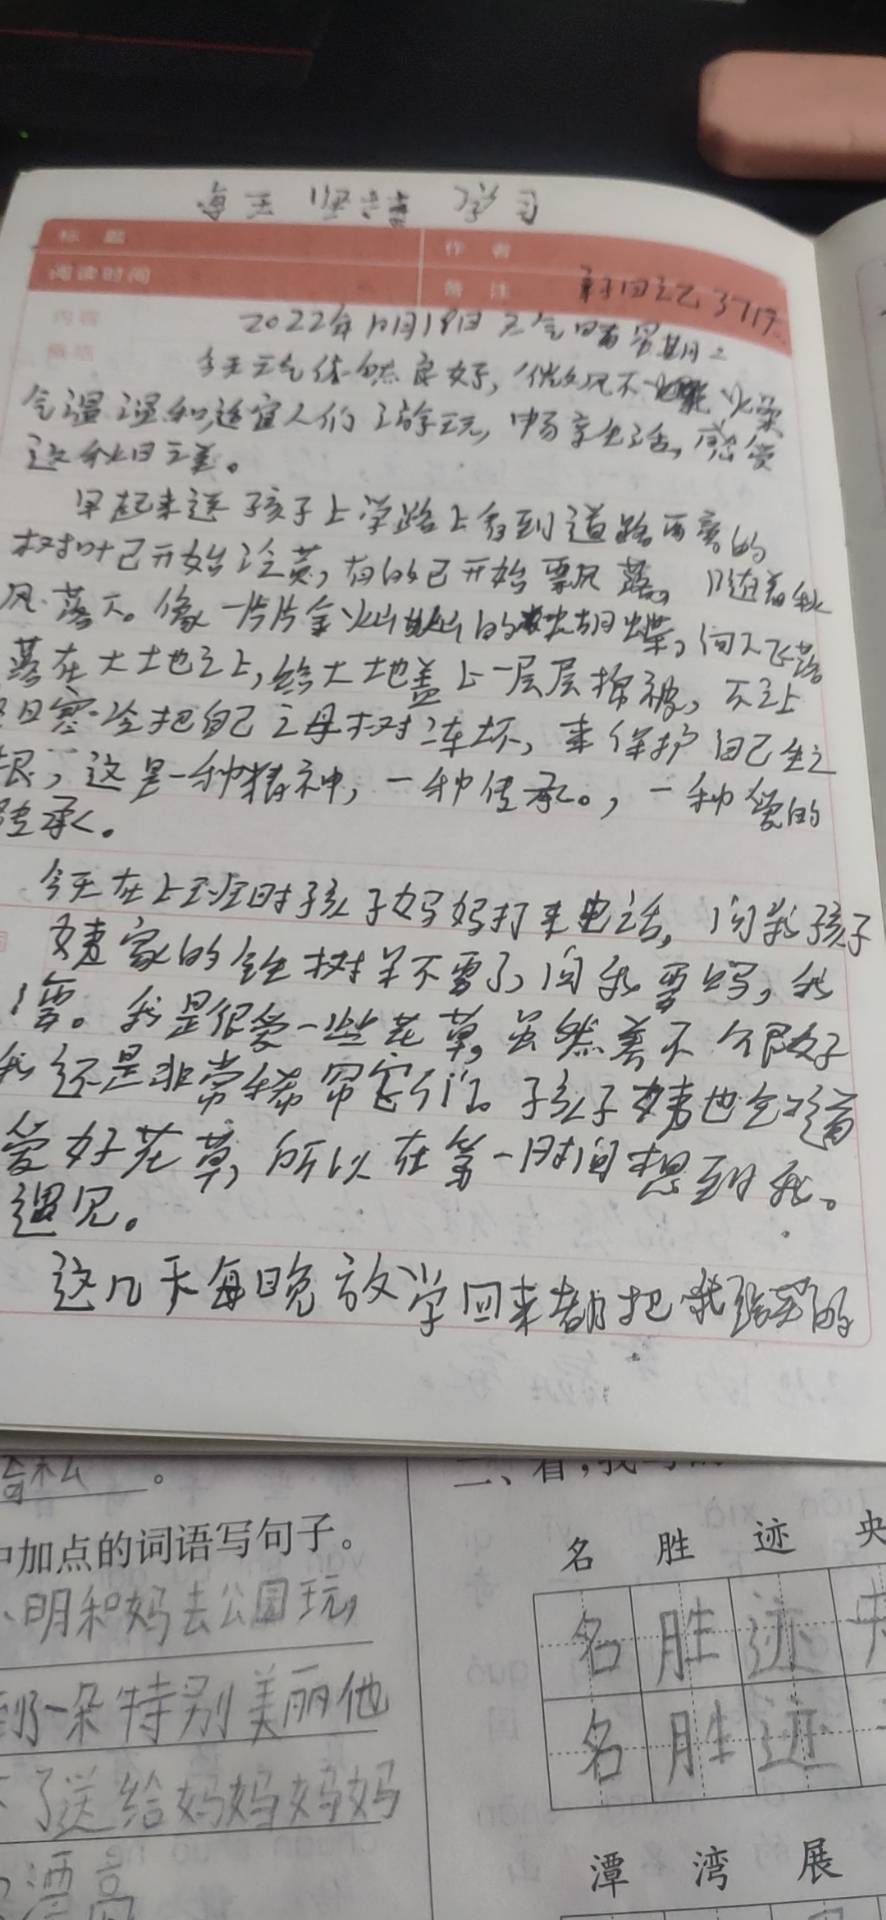 每天坚持学习
标 题
作 者
阅读时间
备 注
371
内容
概括
2022年10月18日 天气晴 星期二
今天天气依然良好,微风不
气温温和,适宜人们游玩,畅享生活,感受
这秋日之美。
早起来送孩子上学路上看到道路两旁的
树叶已开始泛黄,有的已开始飘落。随着秋
风落下。像一片片金灿灿的蝴蝶,向下飞落
落在大地之上,给大地盖上一层层棉被,不让
日寒冷把自己之母树冻坏,来保护自己生之
根,这是一种精神,一种传承。,一种爱的
传承。
今天在上班时孩子妈妈打来电话,问我孩子
姨家的金钱树羊不要了,问我要吗,我
要。我是很爱一些花草,虽然养不很好
我还是非常稀罕它们。孩子姨也知道
爱好花草,所以在第一时间想到我。
遇见。
这几天每晚放学回来都把我给买的
什么。
中加点的词语写句子。
小明和妈去公园玩,
到了一朵特别美丽他
了送给妈妈妈妈
漂亮
二、看,我
名 胜 迹 央
名 胜 迹 央
名 胜 迹
潭 湾 展